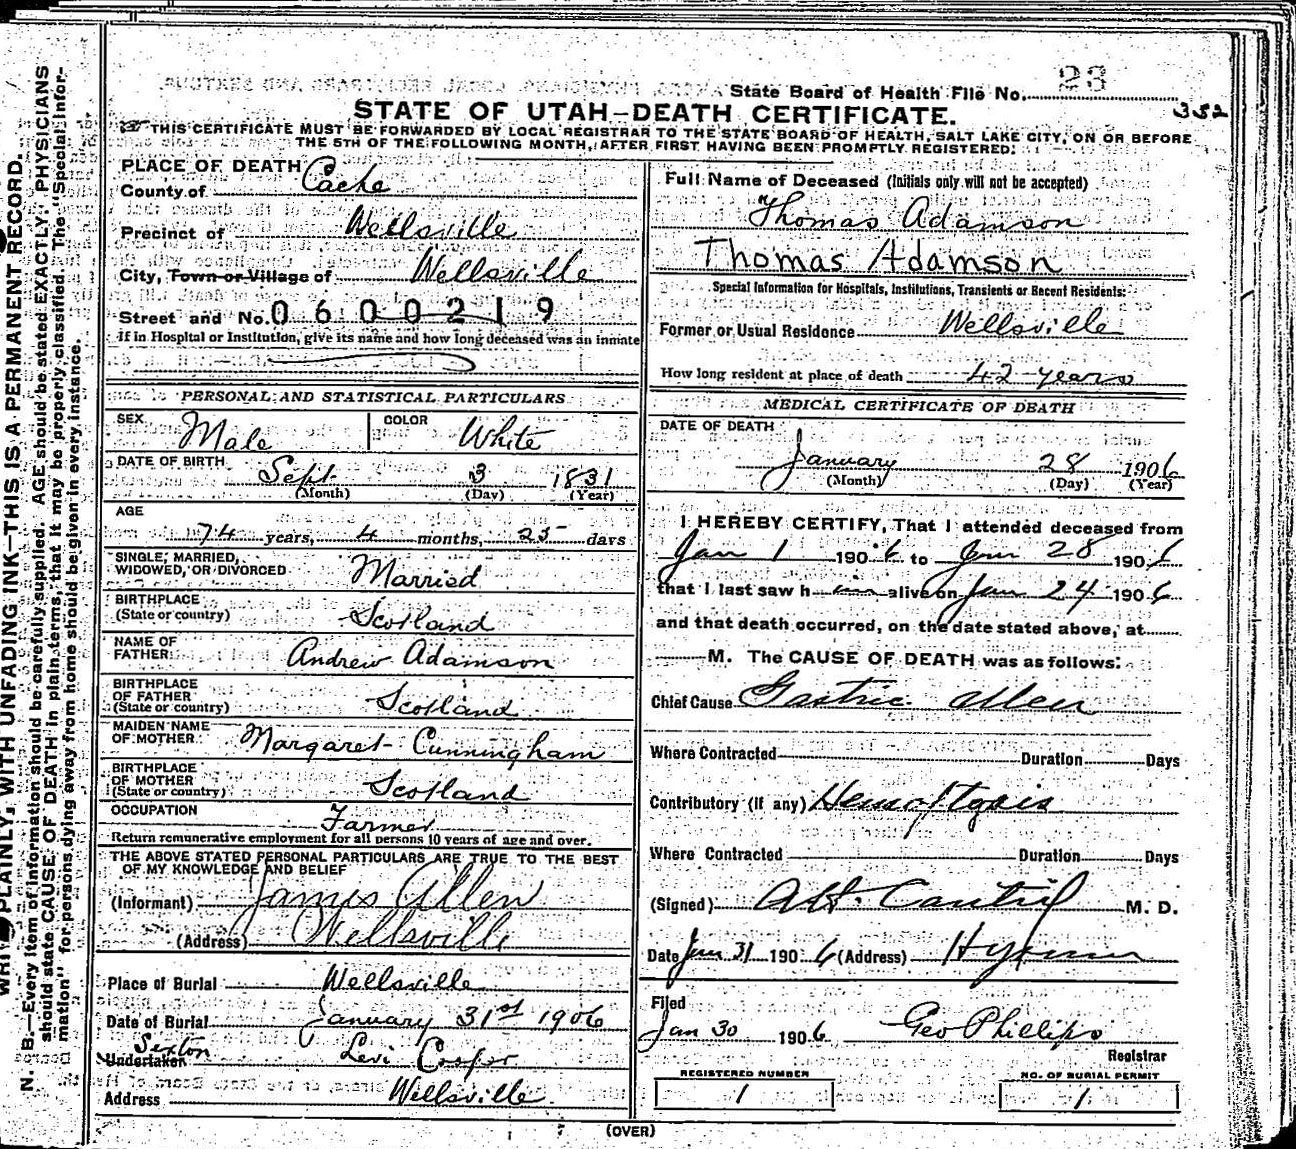 State Board of Health File No. 23
352
STATE OF UTAH—DEATH CERTIFICATE.
THIS CERTIFICATE MUST BE FORWARDED BY LOCAL REGISTRAR TO THE STATE BOARD OF HEALTH, SALT LAKE CITY, ON OR BEFORE
THE 5TH OF THE FOLLOWING MONTH, AFTER FIRST HAVING BEEN PROMPTLY REGISTERED.
PLACE OF DEATH
County of Cache
Precinct of Wellsville
City, Town or Village of Wellsville
Street and No. 0600219
If in Hospital or Institution, give its name and how long deceased was an inmate
PERSONAL AND STATISTICAL PARTICULARS
SEX Male COLOR White
DATE OF BIRTH Sept. 3 1831
(Month) (Day) (Year)
AGE
74 years, 4 months, 25 days
SINGLE, MARRIED,
WIDOWED, OR DIVORCED Married
BIRTHPLACE
(State or country) Scotland
NAME OF
FATHER Andrew Adamson
BIRTHPLACE
OF FATHER
(State or country) Scotland
MAIDEN NAME
OF MOTHER Margaret Cunningham
BIRTHPLACE
OF MOTHER
(State or country) Scotland
OCCUPATION Farmer
Return remunerative employment for all persons 10 years of age and over.
THE ABOVE STATED PERSONAL PARTICULARS ARE TRUE TO THE BEST
OF MY KNOWLEDGE AND BELIEF
(Informant) James Allen
(Address) Wellsville
Place of Burial Wellsville
Date of Burial January 31st 1906
Sexton
Undertaker Levi Cooper
Address Wellsville
Full Name of Deceased (Initials only will not be accepted)
Thomas Adamson
Thomas Adamson
Special Information for Hospitals, Institutions, Transients or Recent Residents:
Former or Usual Residence Wellsville
How long resident at place of death 42 years
MEDICAL CERTIFICATE OF DEATH
DATE OF DEATH
January 28 1906
(Month) (Day) (Year)
I HEREBY CERTIFY, That I attended deceased from
Jan 1 1906 to Jan 28 1906
that I last saw him alive on Jan 24 1906
and that death occurred, on the date stated above, at
M. The CAUSE OF DEATH was as follows:
Chief Cause Gastric Ulcer
Where Contracted Duration Days
Contributory (If any) Hemoptysis
Where Contracted Duration Days
(Signed) M. D.
Date Jan 31 1906 (Address) Hyrum
Filed
Jan 30 1906 Geo Phillips
Registrar
REGISTERED NUMBER
1
NO. OF BURIAL PERMIT
1
(OVER)
PLAINLY, WITH UNFADING INK—THIS IS A PERMANENT RECORD.
N. B.—Every item of information should be carefully supplied. AGE should be stated EXACTLY. PHYSICIANS
should state CAUSE OF DEATH in plain terms, that it may be properly classified. The "Special Infor-
mation" for persons dying away from home should be given in every instance.